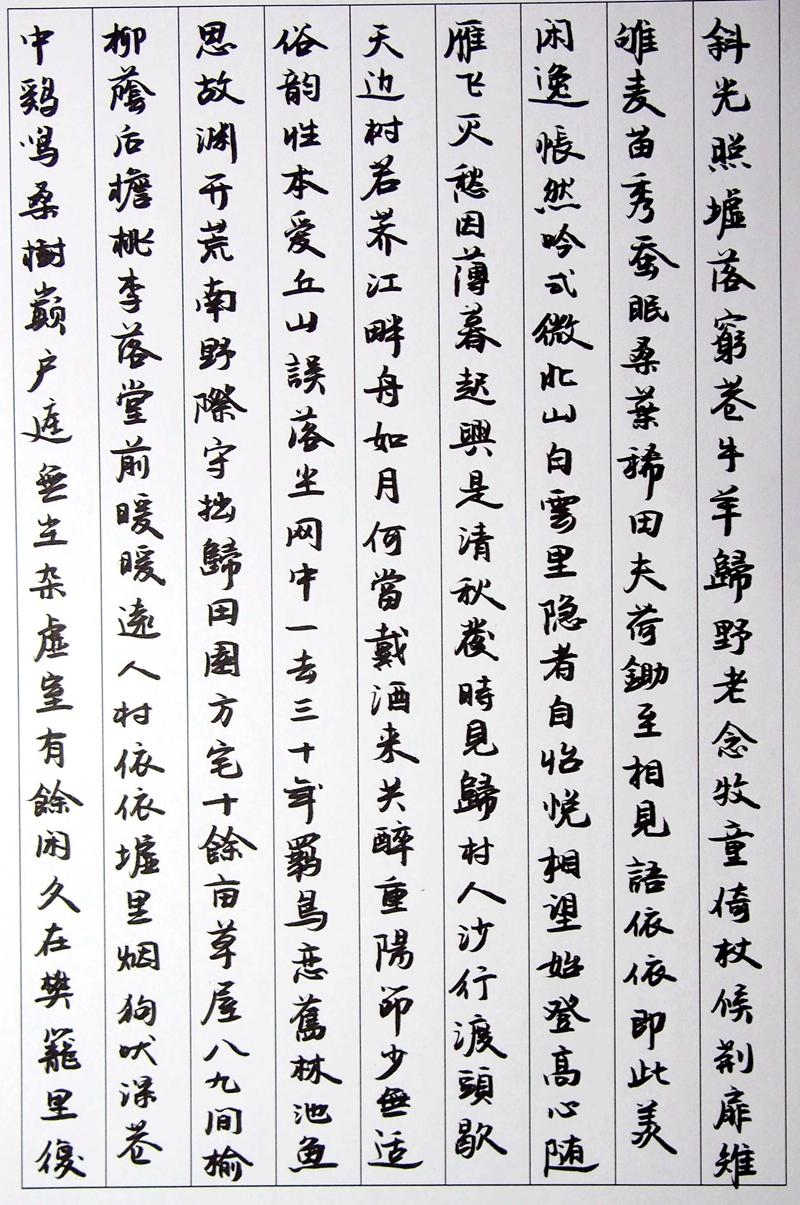 斜光照墟落窮巷牛羊歸野老念牧童倚杖候荆扉雉
雊麦苗秀蚕眠桑葉稀田夫荷鋤至相見語依依即此羡
闲逸悵然吟式微北山白雲里隐者自怡悦相望始登高心随
雁飞灭愁因薄暮起興是清秋發時見歸村人沙行渡頭歇
天边树若荠江畔舟如月何當戴酒来共醉重陽節少無适
俗韵性本爱丘山誤落尘网中一去三十年羁鸟恋舊林池魚
思故渊开荒南野際守拙歸田園方宅十餘亩草屋八九间榆
柳蔭后檐桃李落堂前暖暖遠人村依依墟里烟狗吠深巷
中鷄鸣桑樹巅户庭無尘杂虚室有餘闲久在樊籠里復